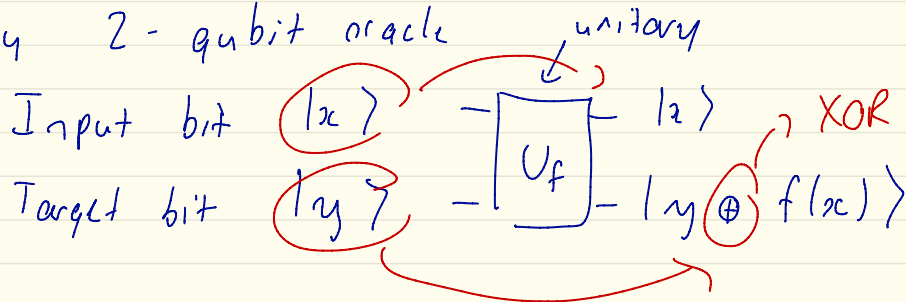 y 2-qubit oracle unitary
Input bit |x⟩ |x⟩ XOR
U_f
Target bit |y⟩ |y ⊕ f(x)⟩